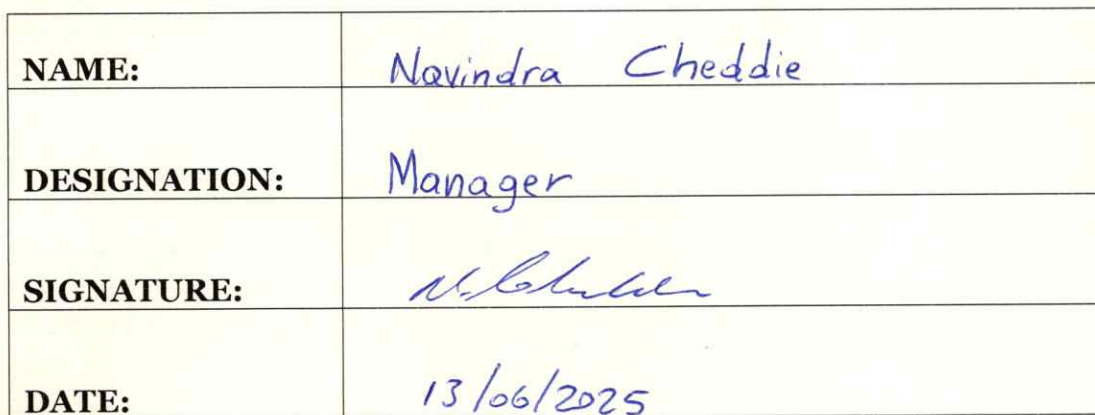 NAME: Navindra Cheddie
DESIGNATION: Manager
SIGNATURE:
DATE: 13/06/2025